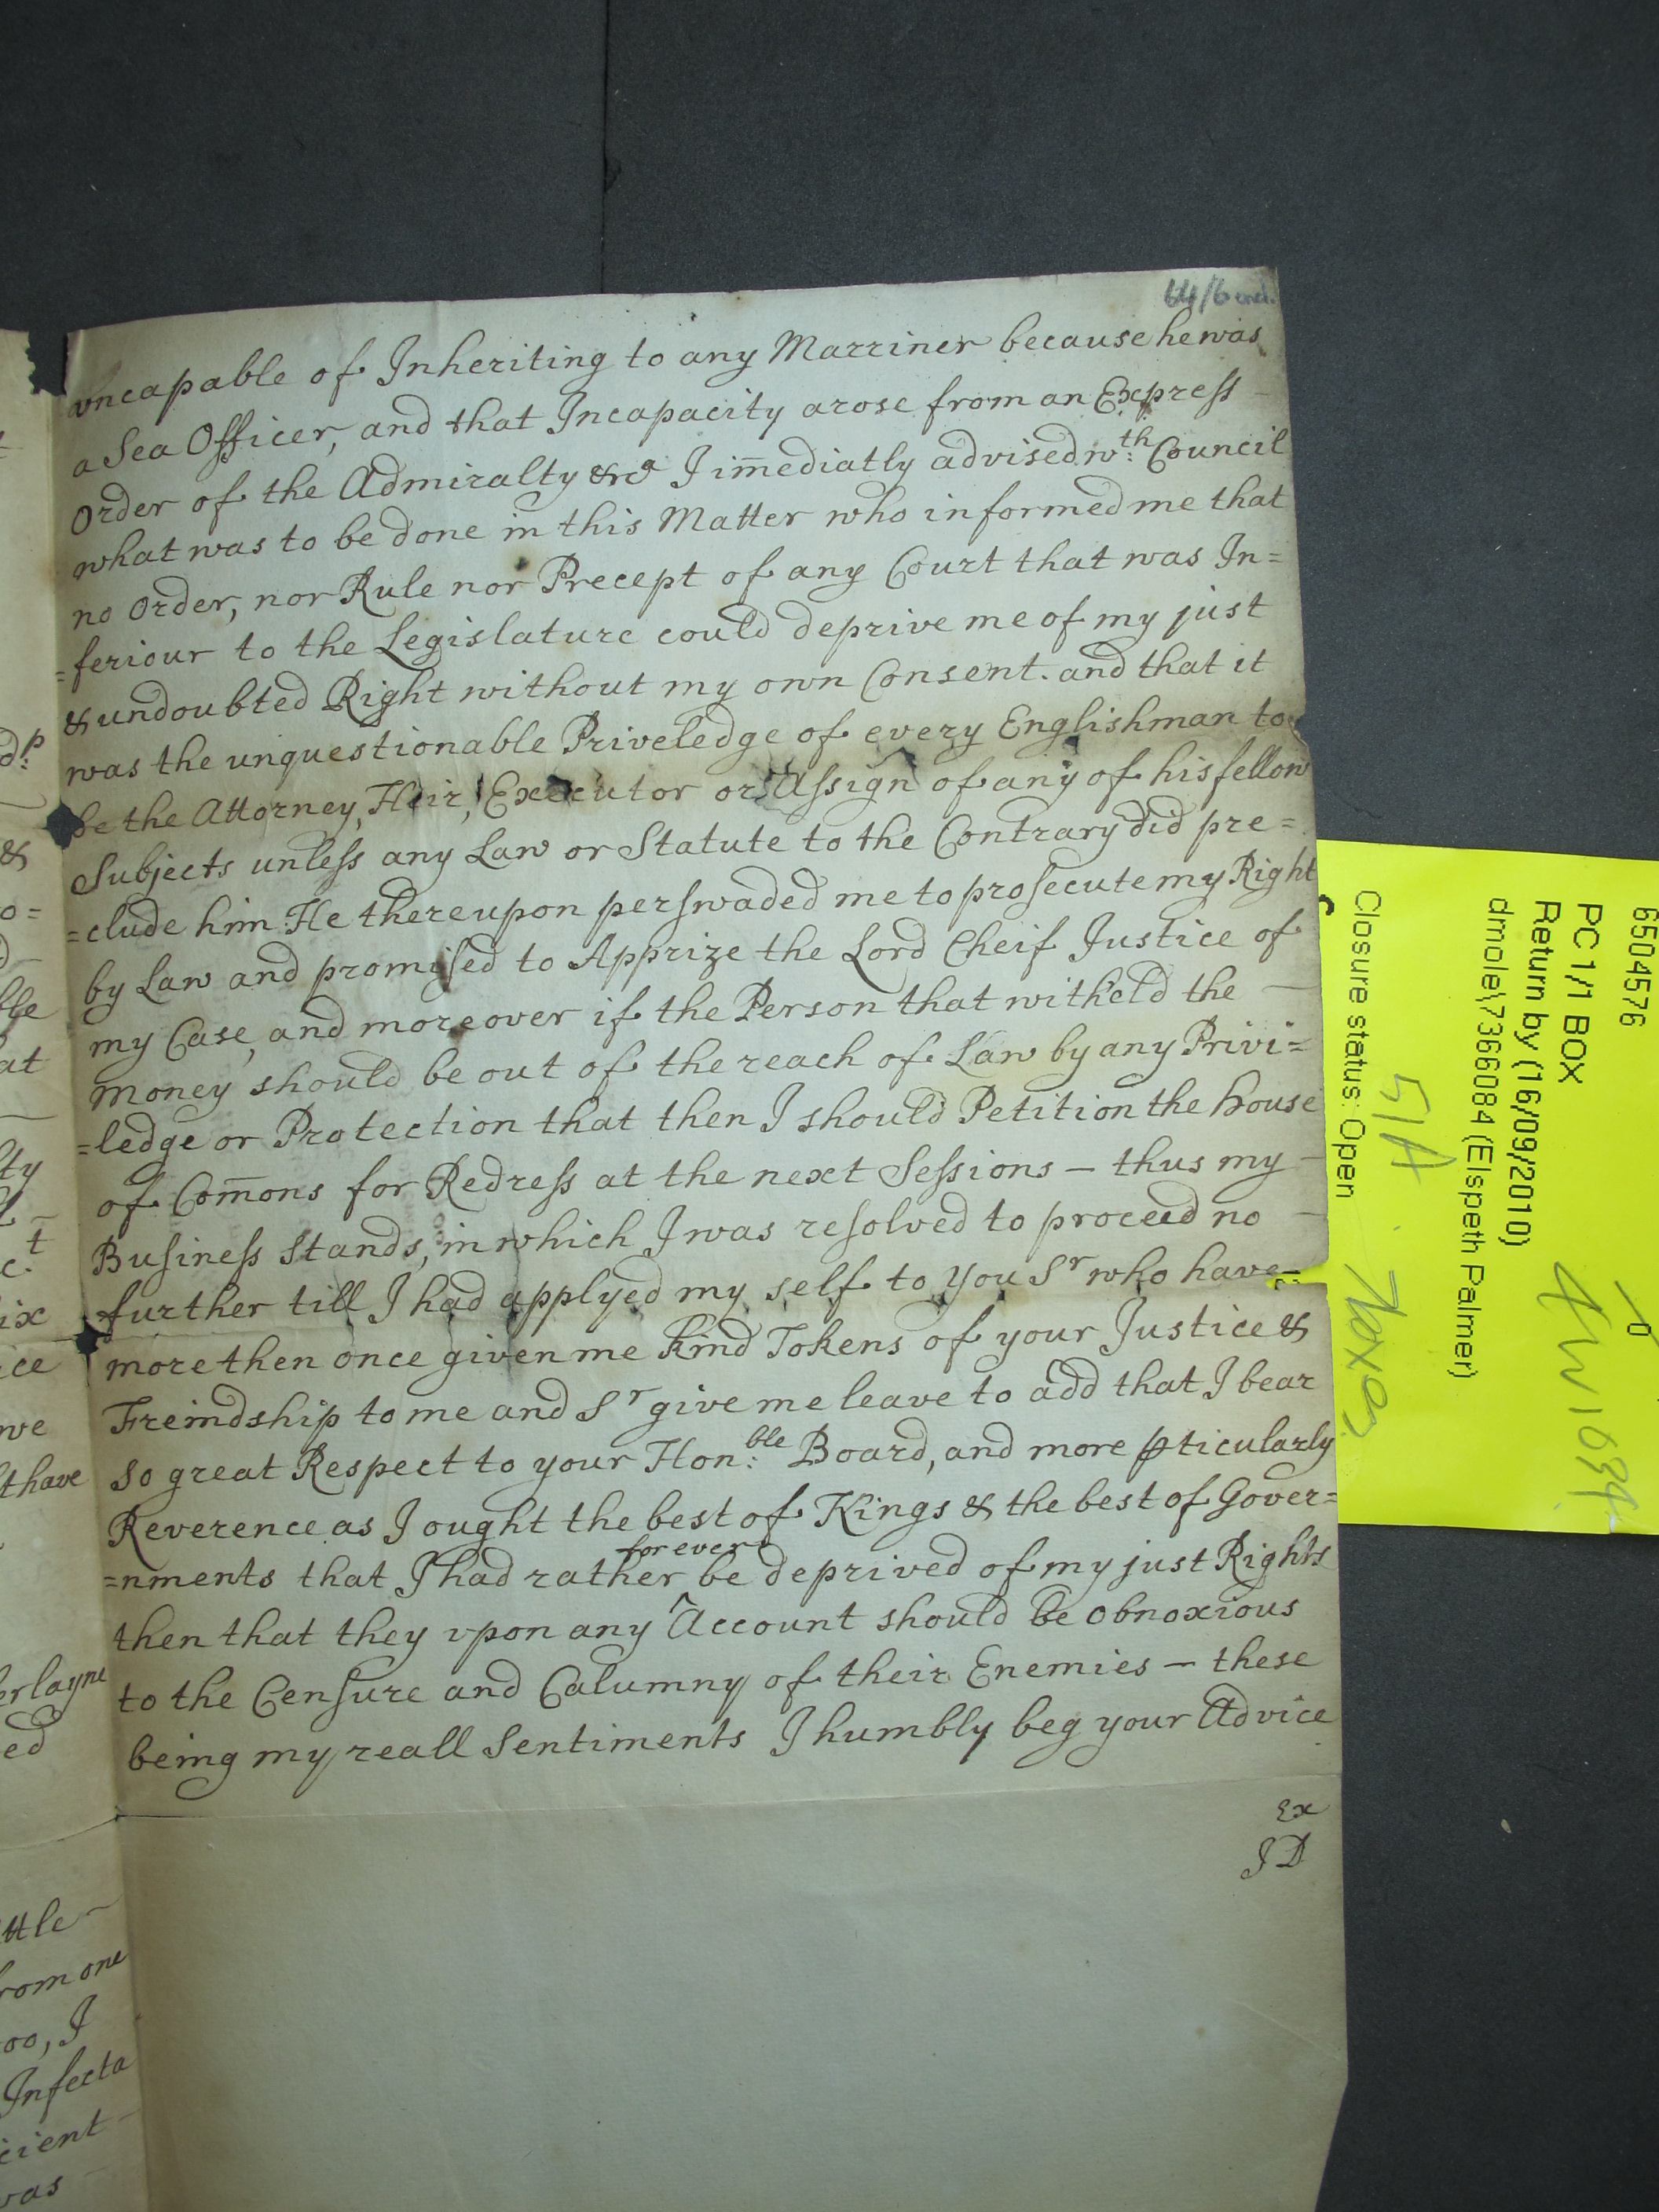 64/6 encl.
uncapable of Inheriting to any Marriner because he was
a Sea Officer, and that Incapacity arose from an Express –
Order of the Admiralty &ca I im̄ediatly advised wth: Council
what was to be done in this Matter who informed me that
no Order, nor Rule nor Precept of any Court that was In=
=feriour to the Legislature could deprive me of my just
& undoubted Right without my own Consent. and that it
was the unquestionable Priveledge of every Englishman to
be the Attorney, Heir, Executor or Assign of any of his fellow
Subjects unless any Law or Statute to the Contrary did pre=
=clude him. He thereupon perswaded me to prosecute my Right
by Law and promised to Apprize the Lord Cheif Justice of
my Case, and moreover if the Person that witheld the –
money should be out of the reach of Law by any Privi=
=ledge or Protection that then I should Petition the house
of Com̄ons for Redress at the next Sessions – thus my –
Business Stands, in which I was resolved to proceed no –
further till I had applyed my self to You Sr who have –
more then once given me kind Tokens of your Justice &
Freindship to me and Sr give me leave to add that I bear
so great Respect to your Hon:ble Board, and more pticularly
Reverence as I ought the best of Kings & the best of Gover=
=nments that I had rather for ever be deprived of my just Rights
then that they upon any ^ Account should be obnoxious
to the Censure and Calumny of their Enemies – these
being my reall Sentiments I humbly beg your Advice
Ex
JD
dp:
&
o=
ble
at
lty
t
c:
ix
ice
we
thave
erlayne
ed
ttle –
from one
oo, I
Infecta
cient –
was
6504576
PC 1/1 BOX
Return by (16/09/2010)
dmole\7366084 (Elspeth Palmer)
Closure status: Open
51A